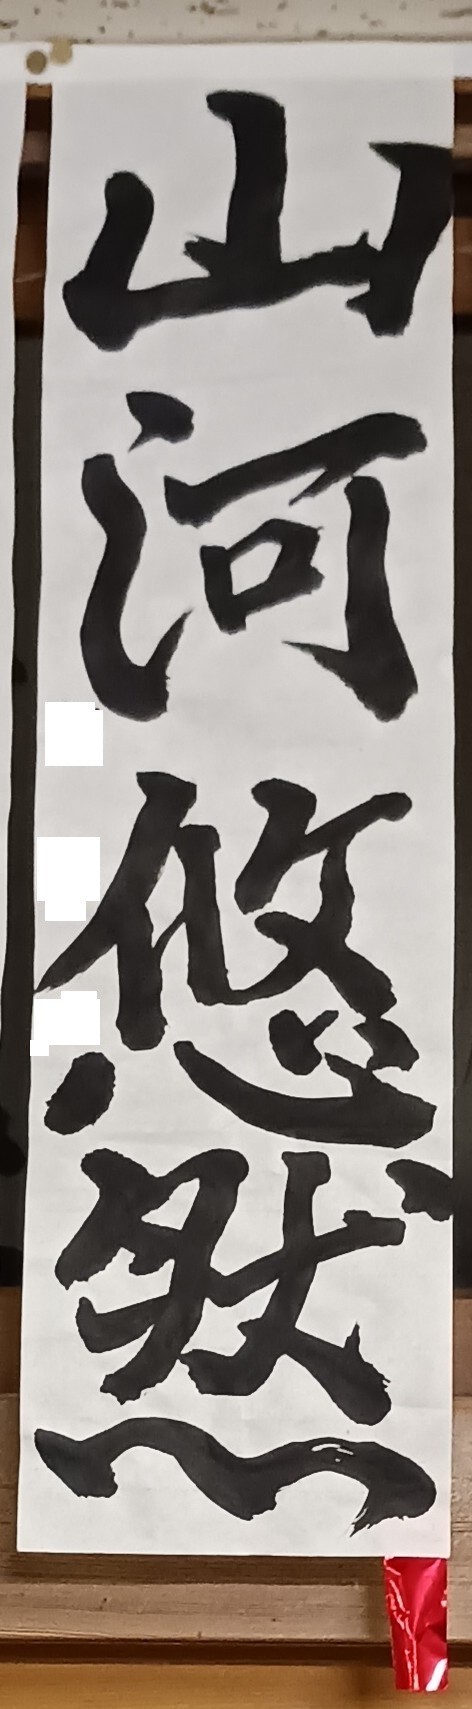 山河悠然